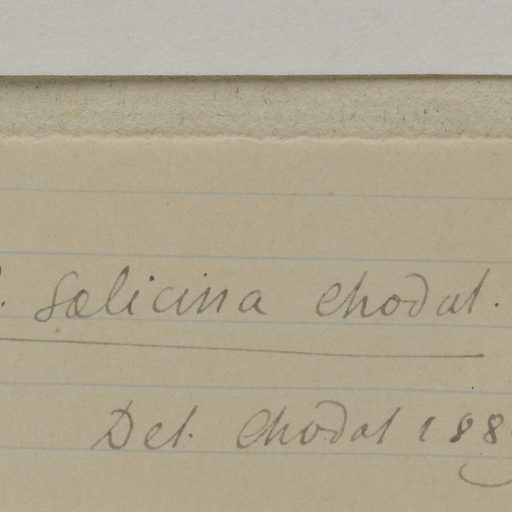 salicina Chodat.
Det. Chodat 188